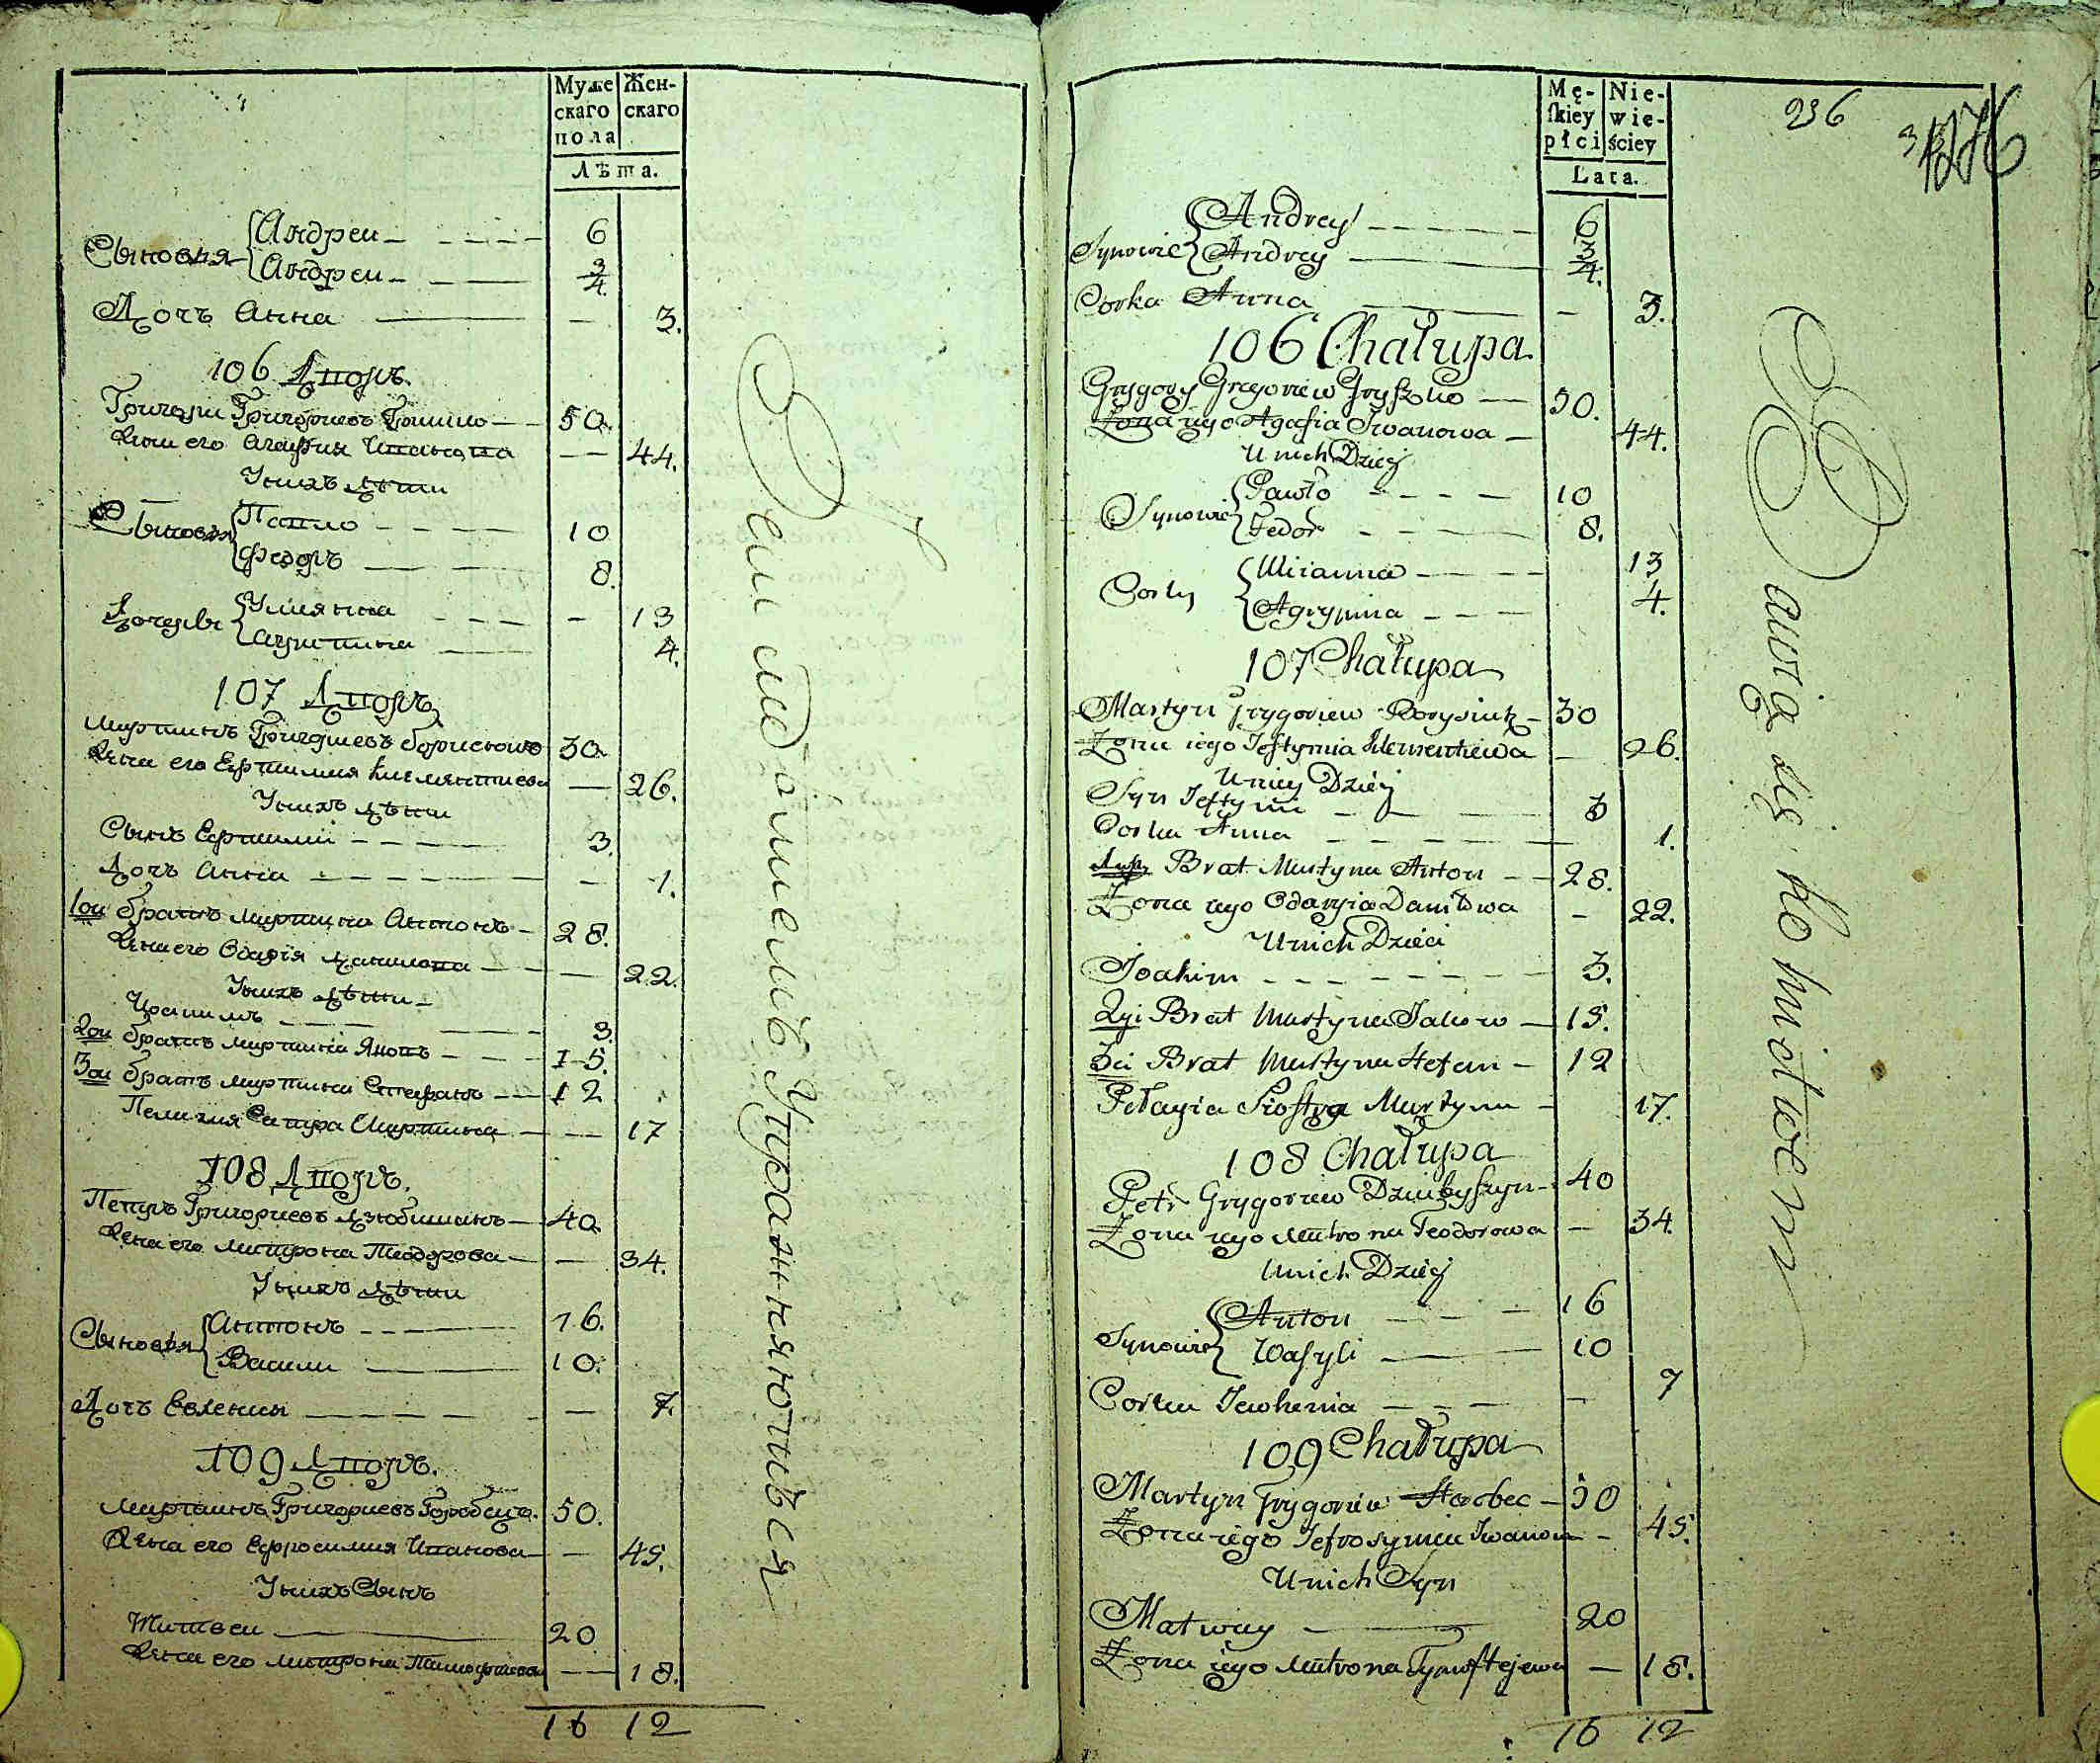 Муже
скаго
пола
Жен-
скаго
Лѣта.
Сыновья
Андреи 6
Андреи 3/4.
Дочъ Анна — 3.
106 Дворъ.
Григори Григориевъ Гришко 50.
Жена его Агафия Иванова — 44.
У нихъ дѣти
Сыновья
Павло 10
Федоръ 8.
Дочерѣ
Улиянна — 13
Агрипина 4.
107 Дворъ
Мартинъ Григориевъ Борисюкъ 30.
Жена его Ефтимия Клемянтиева — 26.
У нихъ дѣти
Сынъ Ефтимии 3.
Дочъ Анна — 1.
1ои братъ Мартина Антонъ 28.
Жена его Одария Данилова — 22.
У нихъ дѣти
Иоакимъ 3.
2ои братъ Мартина Яковъ 15.
3ои братъ Мартина Стефанъ 12
Пелагия Сестра Мартина — 17
108 Дворъ.
Петръ Григориевъ Дзюбишинъ 40.
Жена его Митрона Теодорова — 34.
У нихъ дѣти
Сыновья
Антонъ 16.
Василии 10.
Дочъ Евгения — 7.
109 Дворъ.
Мартинъ Григориевъ Горобецъ. 50.
Жена его Ефросимия Иванова — 45.
У нихъ Сынъ
Матвеи 20
Жена его Митрона Тимофиева — 18.
16 12
Сеи медотменъ Управняютъся
Mę-
ſkiey
płci
Nie-
wie-
ściey
Lata.
236
Synowie
Andrey 6
Andrey 3/4.
Corka Anna — 3.
106 Chałupa
Grygory Gregoriew Gryszko 50.
Żona iego Agafia Iwanowa — 44.
U nich Dziej
Synowie
Pawło 10
Fedor 8.
Corky
Ulianna 13
Agrypina 4.
107 Chałupa
Martyn Grygoriew Borysiuk 30
Żona iego Jeftymia Klementiewa — 26.
U nich Dziej
Syn Jeftymi 3
Corka Anna 1.
1szy Brat Martyna Anton 28.
Żona iego Odaryia Daniłowa — 22.
U nich Dzieci
Joakim 3.
2gi Brat Martyna Jakow 15.
3ci Brat Martyna Stefan 12
Pełagia Siostra Martyna 17.
108 Chałupa
Petr Grygoriew Dziubyszyn 40
Żona iego Mitrona Teodorowa — 34.
U nich Dziej
Synowie
Anton 16
Wasyli 10
Corka Jewhenia — 7
109 Chałupa
Martyn Grygoriew Horobec 50
Żona iego Jefrosymia Iwanowa — 45.
U nich Syn
Matwey 20
Żona iego Mitrona Tymoftejewa — 18.
16 12